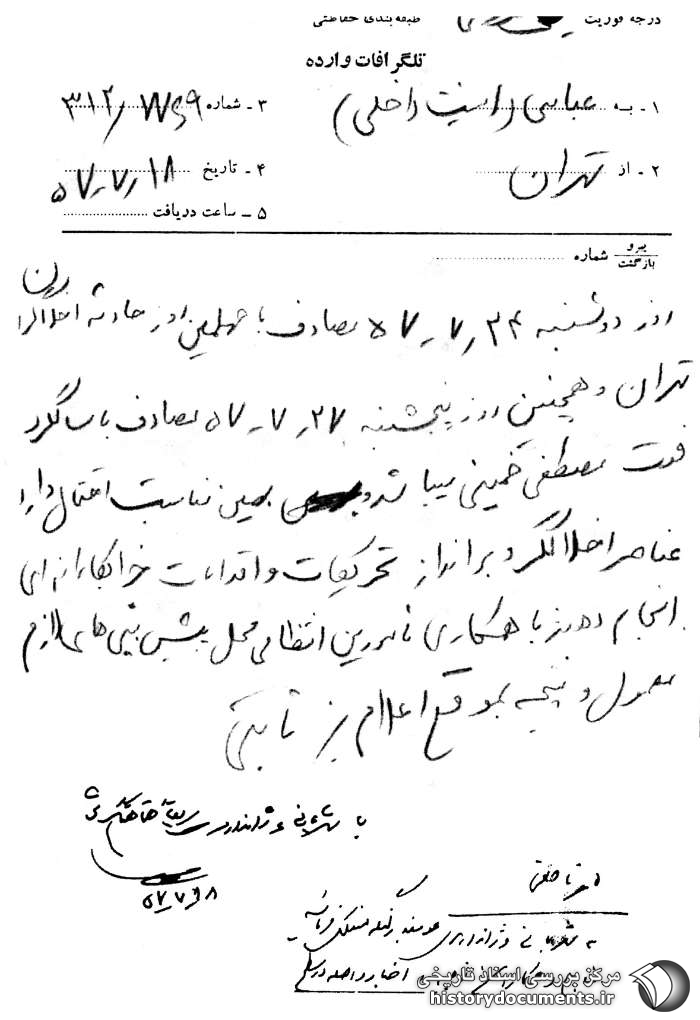 درجه فوریت طبقه‌بندی حفاظتی
تلگرافات وارده
۱ - به عباسی (امنیت داخلی)
۳ - شماره ۳۱۲/
۲ - از تهران
۴ - تاریخ ۱۸/۷/۵۷
۵ - ساعت دریافت
پیرو بازگشت شماره
روز دوشنبه ۲۴/۷/۵۷ مصادف با چهلمین روز حادثه اخلالگران
تهران و همچنین روز پنجشنبه ۲۷/۷/۵۷ مصادف با سالگرد
فوت مصطفی خمینی میباشد و بهمین مناسبت احتمال دارد
عناصر اخلالگر و برانداز تحریکات و اقدامات خرابکارانه‌ای
انجام دهند با همکاری مامورین انتظامی محل پیش بینی های لازم
معمول و نتیجه بموقع اعلام
با شهربانی و ژاندارمری
به شهربانی و ژاندارمری
مرکز بررسی اسناد تاریخی
historydocuments.ir